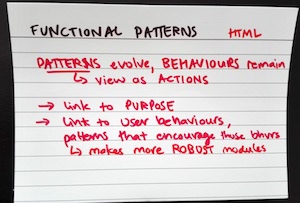 FUNCTIONAL PATTERNS HTML
PATTERNS evolve, BEHAVIOURS remain
↳ view as ACTIONS
→ link to PURPOSE
→ link to user behaviours,
patterns that encourage those bhvrs
↳ makes more ROBUST modules